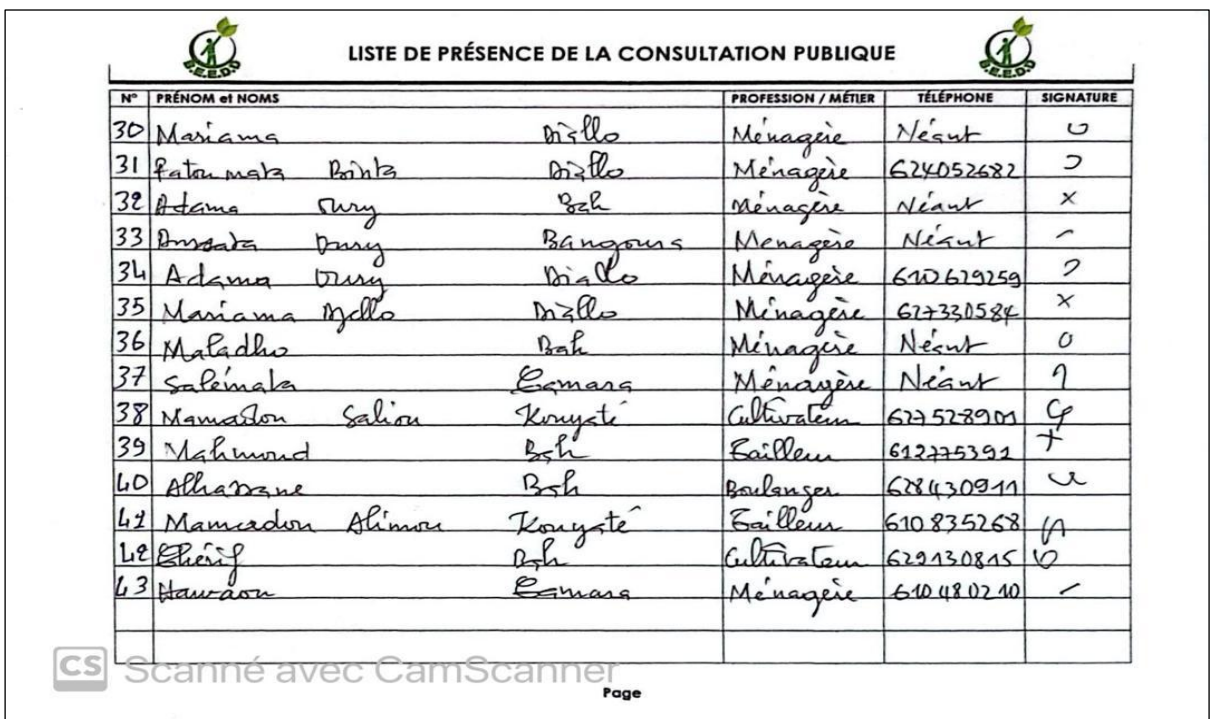 B.E.E.D.D LISTE DE PRÉSENCE DE LA CONSULTATION PUBLIQUE B.E.E.D.D
N° PRÉNOM et NOMS PROFESSION / MÉTIER TÉLÉPHONE SIGNATURE
30 Mariama Diallo Ménagère Néant
31 Fatoumata Binta Diallo Ménagère 624052682
32 Adama Oury Bah Ménagère Néant
33 Oury Bangoura Menagère Néant
34 Adama Oury Diallo Ménagère 610629259
35 Mariama Diallo Ménagère 627330584
36 Maladho Bah Ménagère Néant
37 Salémata Camara Ménagère Néant
38 Mamadou Saliou Konyaté Cultivateur 627528901
39 Mahmoud Bah Tailleur 612775391
40 Alhassane Bah Boulanger 628430911
41 Mamadou Alimou Konyaté Tailleur 610835268
42 Chérif Bah Cultivateur 629130815
43 Hawaou Camara Ménagère 610480210
CS Scanné avec CamScanner
Page